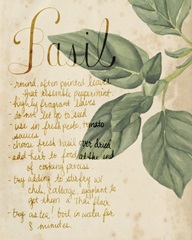 Basil
- round, often pointed leaves
that resemble peppermint
- highly fragrant leaves
- do not let go to seed
- use in fresh pesto, tomato
sauces
- choose fresh basil over dried
- add herb to food at the end
of cooking process
- try adding to stirfry w/
chili, cabbage, eggplant to
get them a Thai flair
- try as tea! boil in water for
8 minutes